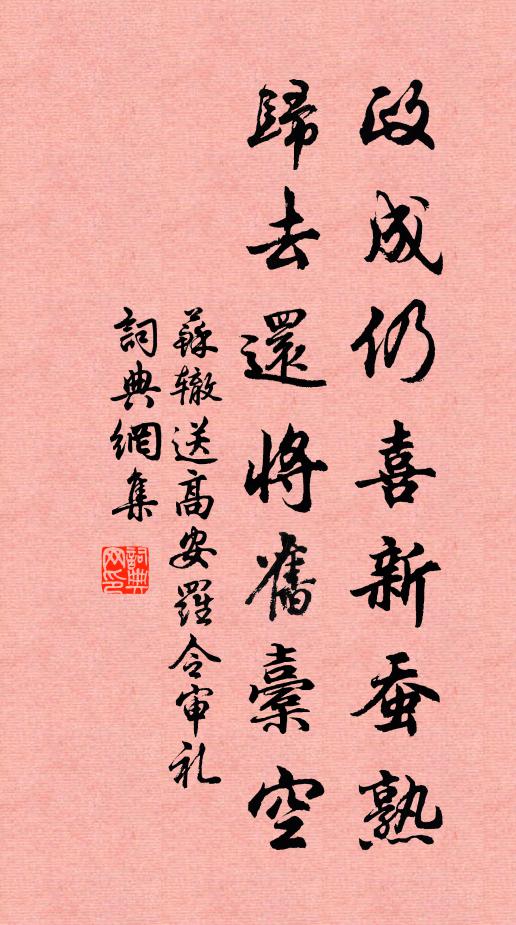 政成仍喜新蚕熟
歸去還將舊橐空
蘇辙送高安羅令审礼
詞典網集
詞典网印